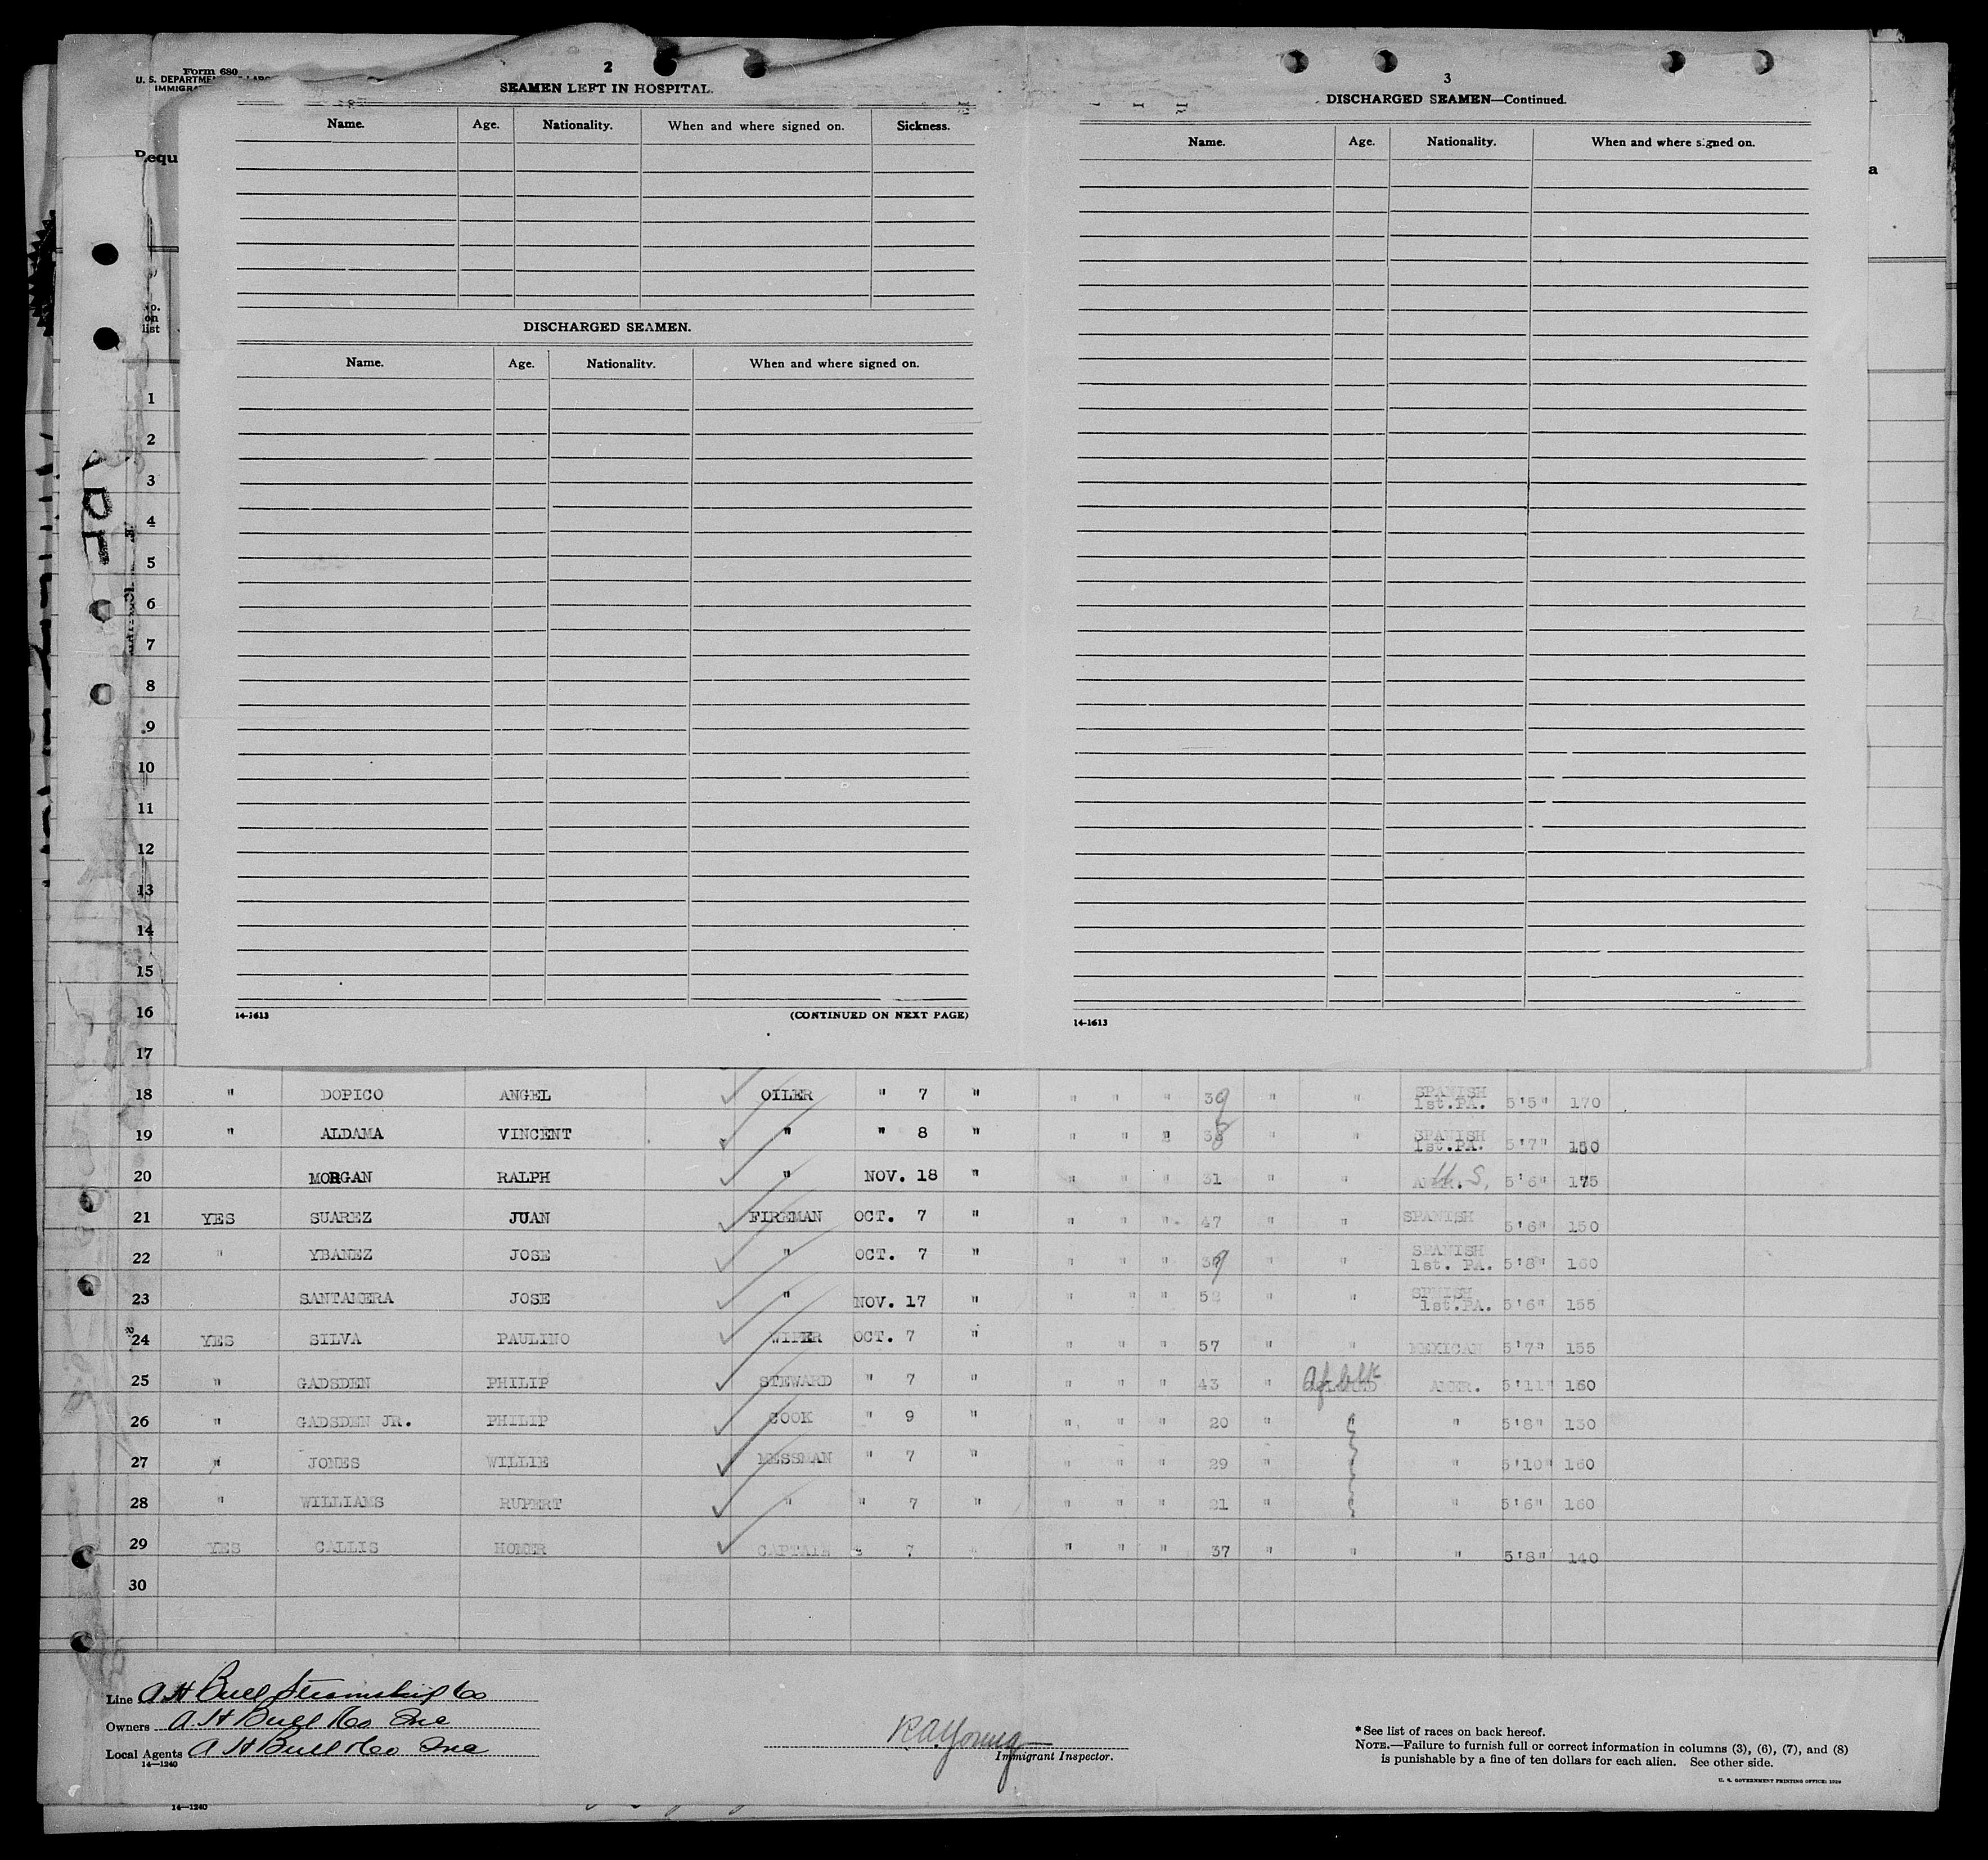 Form 680
U. S. DEPARTME
IMMIGRA
Requ
No.
on
list
2
SEAMEN LEFT IN HOSPITAL.
Name. Age. Nationality. When and where signed on. Sickness.
DISCHARGED SEAMEN.
Name. Age. Nationality. When and where signed on.
14-1613 (CONTINUED ON NEXT PAGE)
3
DISCHARGED SEAMEN—Continued.
Name. Age. Nationality. When and where signed on.
14-1613
a
1
2
3
4
5
6
7
8
9
10
11
12
13
14
15
16
17
18 " DOPICO ANGEL OILER " 7 " " " " 39 " " SPANISH 1st.PA. 5'5" 170
19 " ALDAMA VINCENT " " 8 " " " " 38 " " SPANISH 1st.PA. 5'7" 150
20 MORGAN RALPH " NOV. 18 " " " " 31 " " U.S. 5'6" 175
21 YES SUAREZ JUAN FIREMAN OCT. 7 " " " " 47 " " SPANISH 5'6" 150
22 " YBANEZ JOSE " OCT. 7 " " " " 39 " " SPANISH 1st. PA. 5'8" 160
23 SANTAMERA JOSE " NOV. 17 " " " " 52 " " SPNISH 1st.PA. 5'6" 155
24 YES SILVA PAULINO WIPER OCT. 7 " " " " 57 " " MEXICAN 5'7" 155
25 " GADSDEN PHILIP STEWARD " 7 " " " " 43 " Af. blk AMER. 5'11" 160
26 " GADSDEN JR. PHILIP COOK " 9 " " " " 20 " " " 5'8" 130
27 " JONES WILLIE MESSMAN " 7 " " " " 29 " " " 5'10" 160
28 " WILLIAMS RUPERT " " 7 " " " " 21 " " " 5'6" 160
29 YES CALLIS HOMER CAPTAIN " 7 " " " " 37 " " " 5'8" 140
30
Line A H Bull Steamship Co
Owners A. H Bull & Co Inc
Local Agents A H Bull & Co Inc
14—1240
R A Young
Immigrant Inspector.
* See list of races on back hereof.
NOTE.—Failure to furnish full or correct information in columns (3), (6), (7), and (8)
is punishable by a fine of ten dollars for each alien. See other side.
U. S. GOVERNMENT PRINTING OFFICE: 1929
14—1240